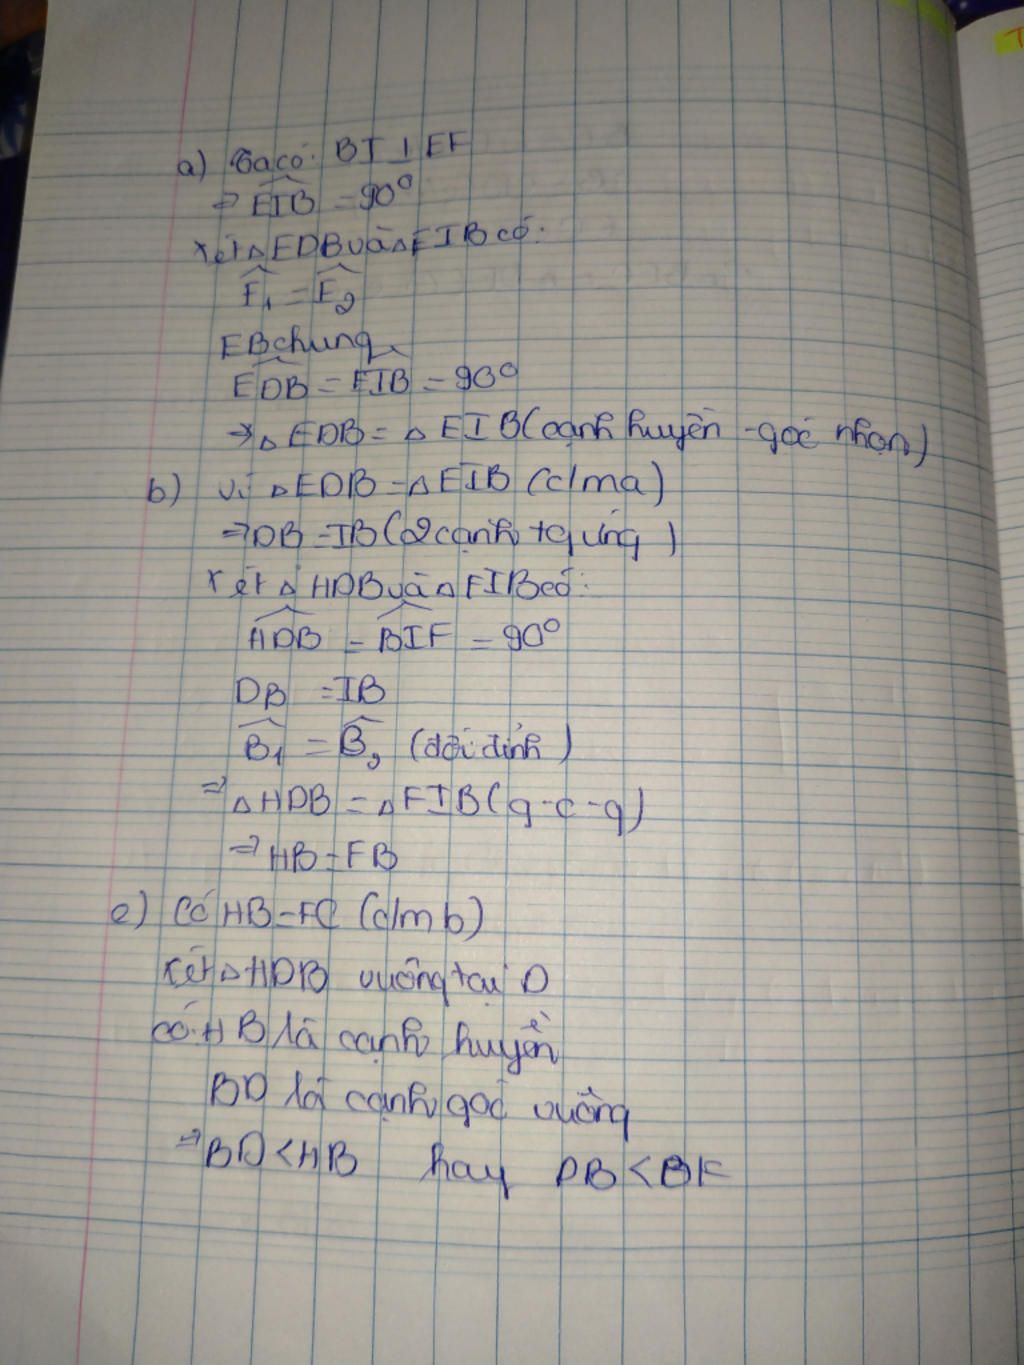 a) Ta có: BI ⊥ EF
⇒ EIB = 90°
Xét △EDB và △EIB có:
E₁ = E₂
EB chung
EDB = EIB = 90°
⇒ △EDB = △EIB (cạnh huyền - góc nhọn)
b) Vì △EDB = △EIB (c/m a)
⇒ DB = IB (2 cạnh tg ứng)
Xét △HDB và △FIB có:
HDB = BIF = 90°
DB = IB
B₁ = B₂ (đối đỉnh)
⇒ △HDB = △FIB (g-c-g)
⇒ HB = FB
c) Có HB = FC (c/m b)
Xét △HDB vuông tại D
có: HB là cạnh huyền
BD là cạnh góc vuông
⇒ BD < HB hay DB < BF